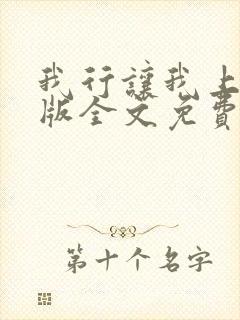 我行讓我上
版全文免費
第十个名字